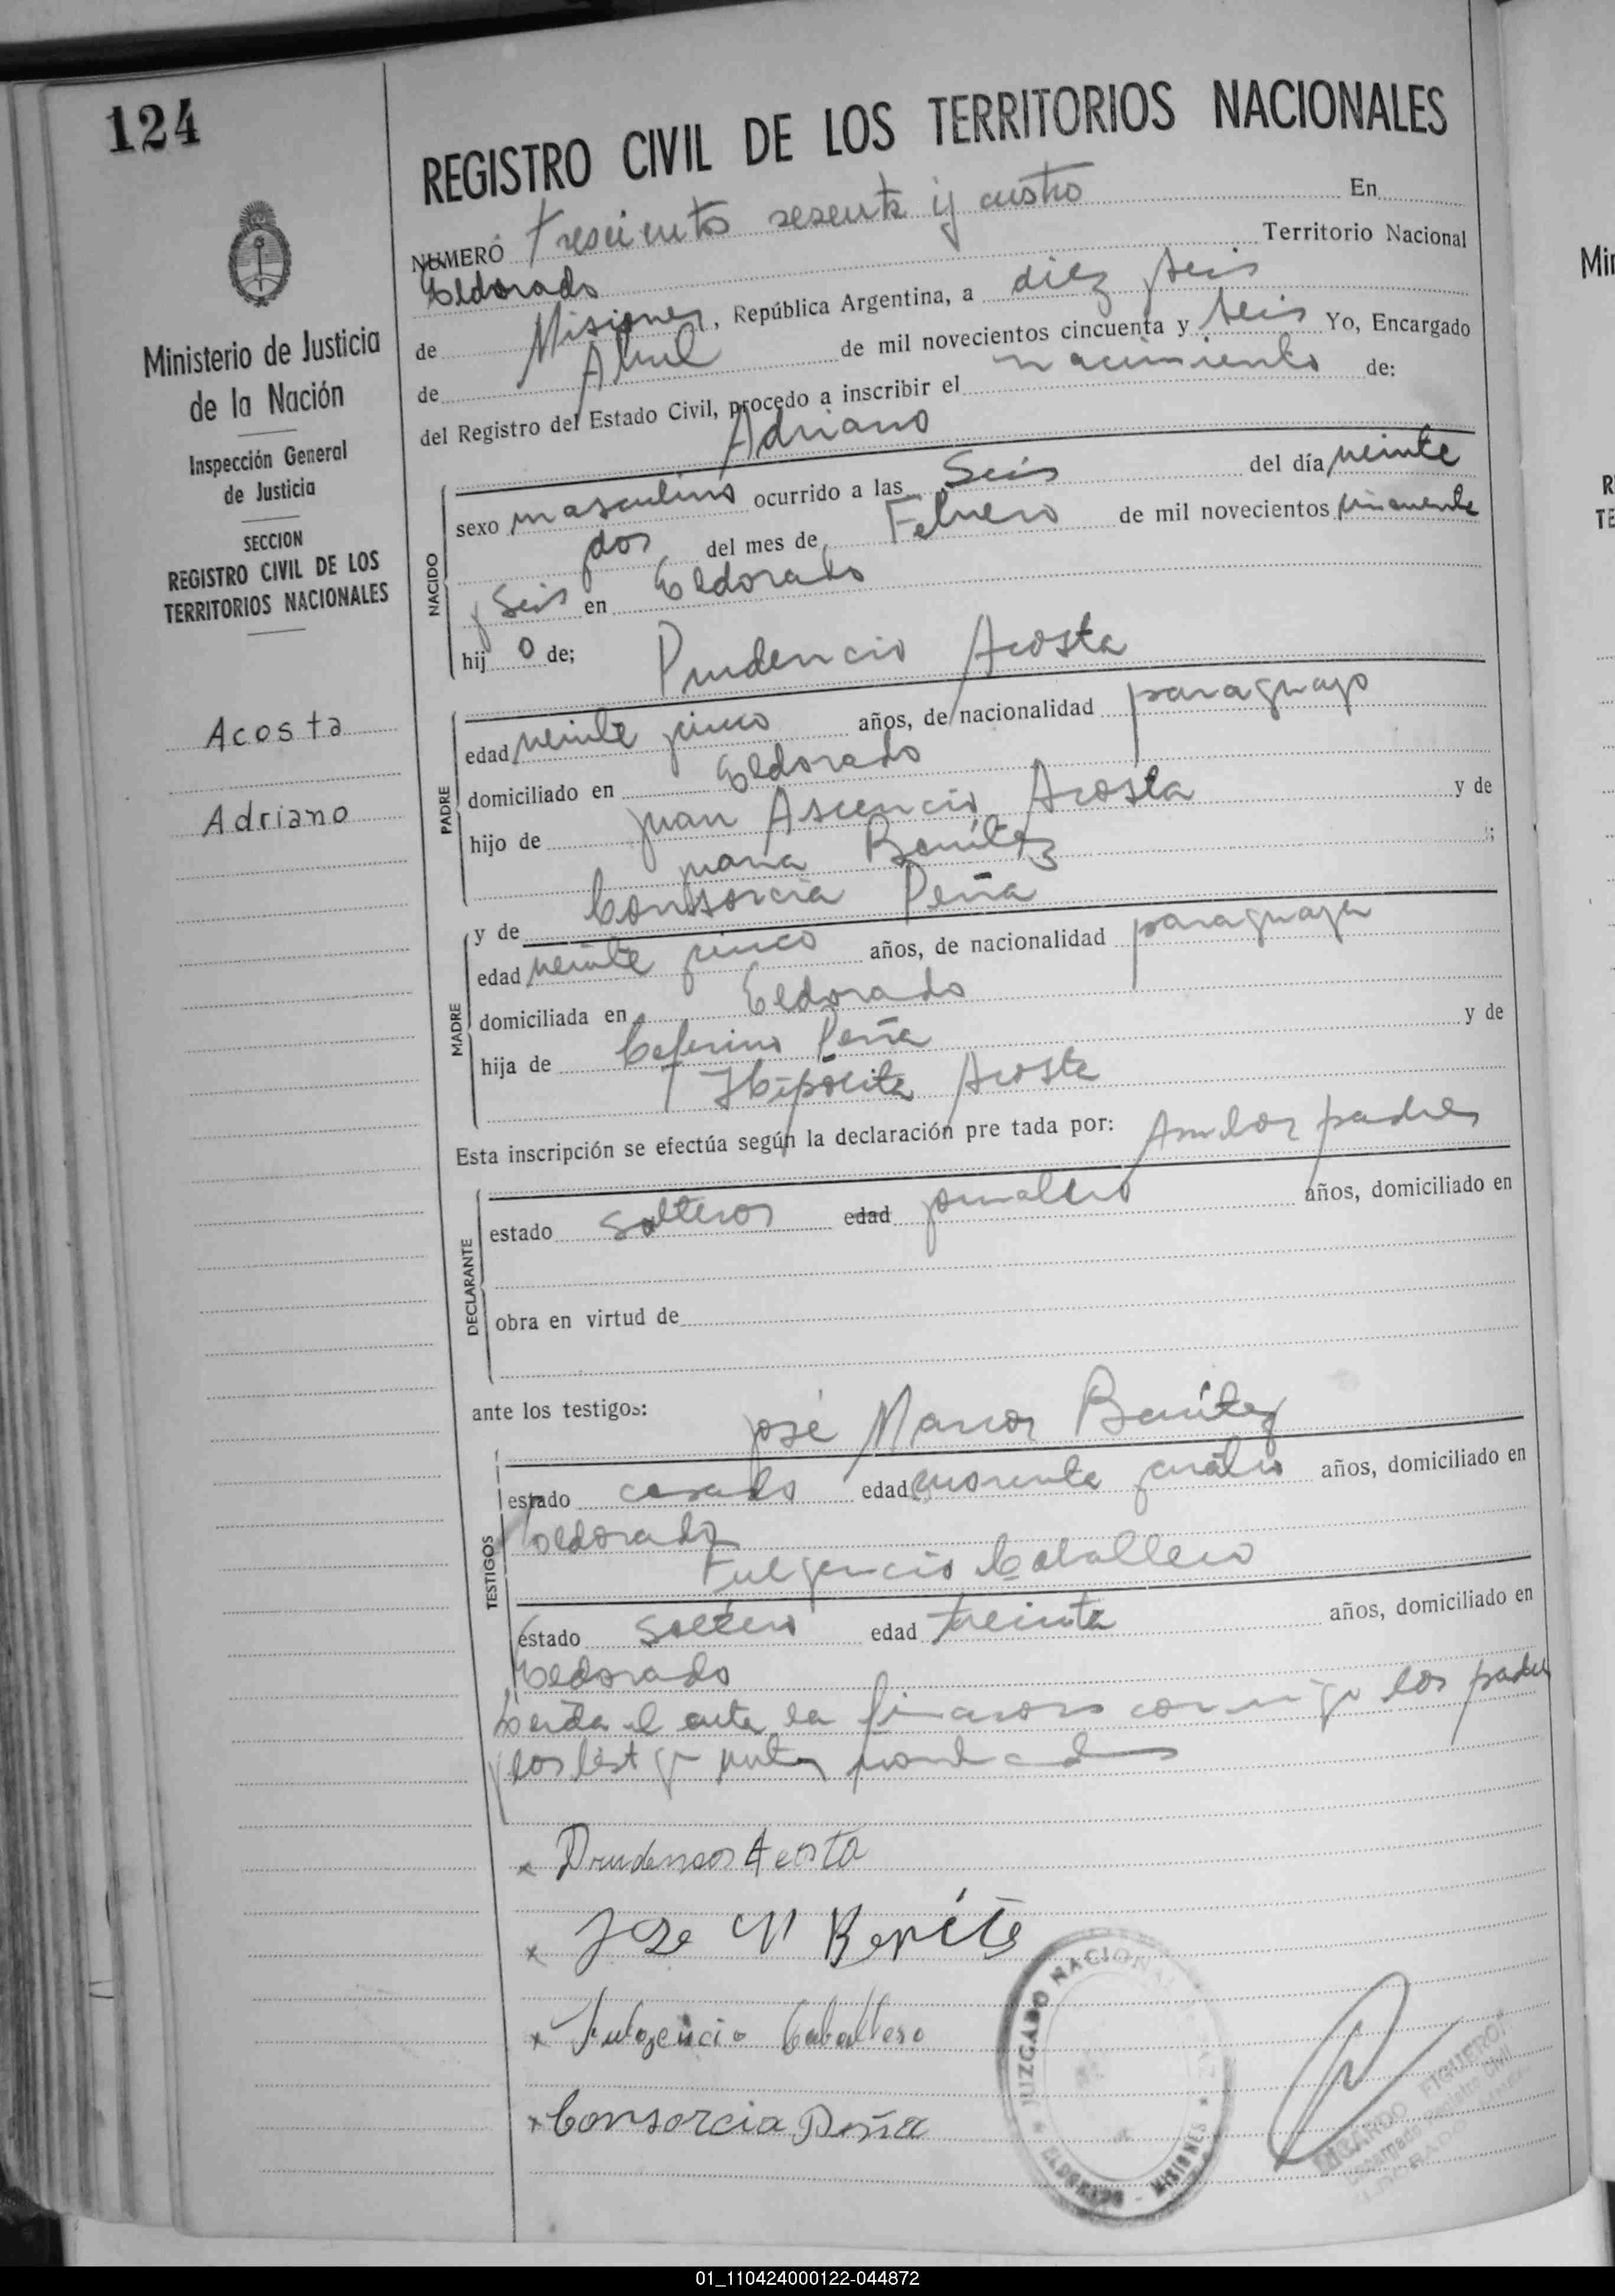 124
REGISTRO CIVIL DE LOS TERRITORIOS NACIONALES
NUMERO trescientos sesenta y cuatro En
Eldorado Territorio Nacional
de Misiones, República Argentina, a diez y seis
de Abril de mil novecientos cincuenta y seis Yo, Encargado
del Registro del Estado Civil, procedo a inscribir el nacimiento de:
Adriano
Ministerio de Justicia
de la Nación
Inspección General
de Justicia
SECCION
REGISTRO CIVIL DE LOS
TERRITORIOS NACIONALES
Acosta
Adriano
NACIDO
sexo masculino ocurrido a las Seis del día veinte
dos del mes de Febrero de mil novecientos cincuenta
y Seis en Eldorado
hijo de;
Prudencio Acosta
PADRE
edad veinte y cinco años, de nacionalidad paraguayo
domiciliado en Eldorado
hijo de Juan Ascencio Acosta y de
Juana Benítez ;
y de Conssorcia Peña
MADRE
edad veinte y cinco años, de nacionalidad paraguaya
domiciliada en Eldorado
hija de Ceferino Peña y de
Hipólita Acosta
Esta inscripción se efectúa según la declaración pre tada por: Ambos padres
DECLARANTE
estado solteros edad jornalero años, domiciliado en
obra en virtud de
ante los testigos:
José Marcos Benítez
TESTIGOS
estado casado edad cuarenta y cuatro años, domiciliado en
Eldorado
Fulgencio Caballero
estado soltero edad treinta años, domiciliado en
Eldorado
Leída el acta la firmaron conmigo los padres
y los testigos
x Prudensos Acosta
x Jose M Benítes
x Fulgencio Caballero
x Consorcia Peña
JUZGADO NACIONAL
ELDORADO - MISIONES
FIGUERO
Encargado Registro Civil
ELDORADO
Min
R
TE
01_110424000122-044872